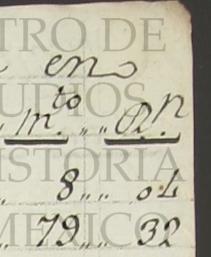 en
mto „ „ Dn
„ 8 „ „ 04
„ 79 „ „ 32
TRO DE
UDIOS
ISTORIA
MEXICO